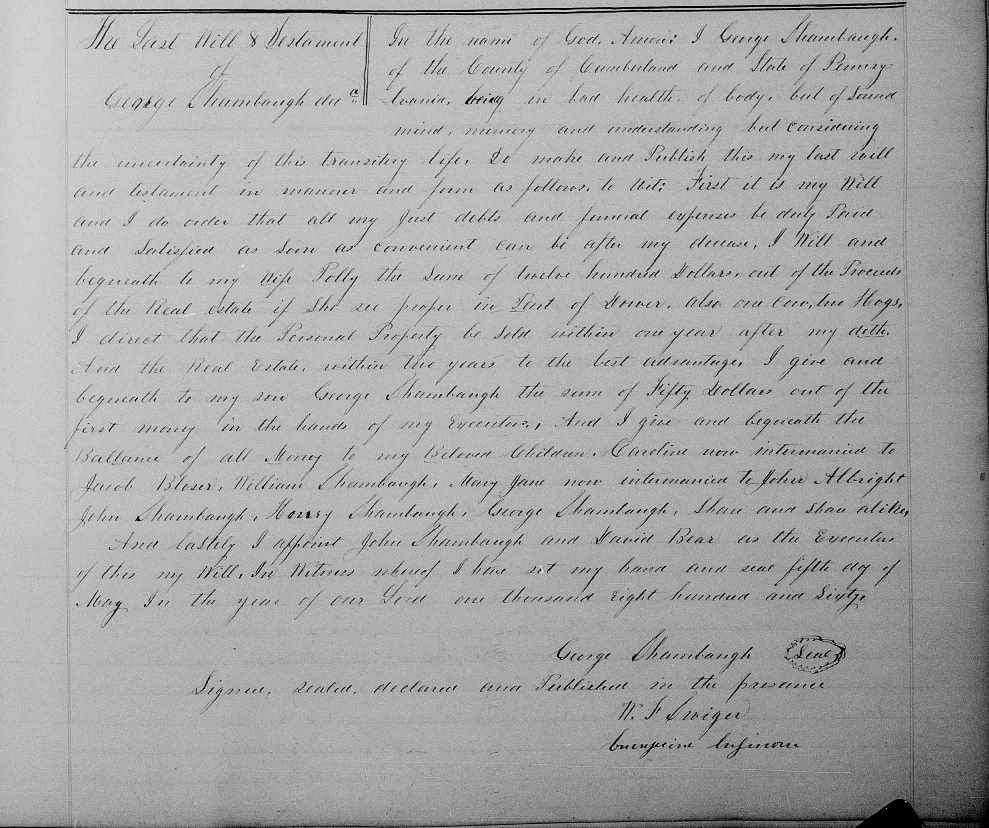 The Last Will & Testament
of
George Shambaugh decᵈ
In the name of God, Amen: I George Shambaugh.
of the County of Cumberland and State of Pennsy-
lvania, being in bad health, of body, but of Sound
mind, memory and understanding but Considering
the uncertainty of this transitory life, do make and Publish this my last will
and testament in manner and form as follows, to Wit: First it is my Will
and I do order that all my Just debts and funeral expenses be duly Paid
and Satisfied as Soon as convenient can be after my decease, I Will and
bequeath to my Wife Polly the Sum of twelve hundred Dollars, out of the Proceeds
of the Real estate if She see proper in Part of Dower, also one Cow, two Hogs,
I direct that the Personal Property be Sold within one year after my deth.
And the Real Estate, within two years to the best advantage, I give and
bequeath to my son George Shambaugh the sum of Fifty Dollars out of the
first money in the hands of my Executors, And I give and bequeath the
Ballance of all Money to my Beloved Children, Caroline now intermarried to
Jacob Bloser, William Shambaugh, Mary Jane now intermarried to John Albright
John Shambaugh, Henry Shambaugh, George Shambaugh, Shair and Shair alike,
And lastly I appoint John Shambaugh and David Bear as the Executors
of this my Will, In Witness whereof I have set my hand and seal fifth day of
May In the year of our Lord one thousand Eight hundred and Sixty
George Shambaugh Seal
Signed, sealed, declared and Published in the presence
W. F. Swiger